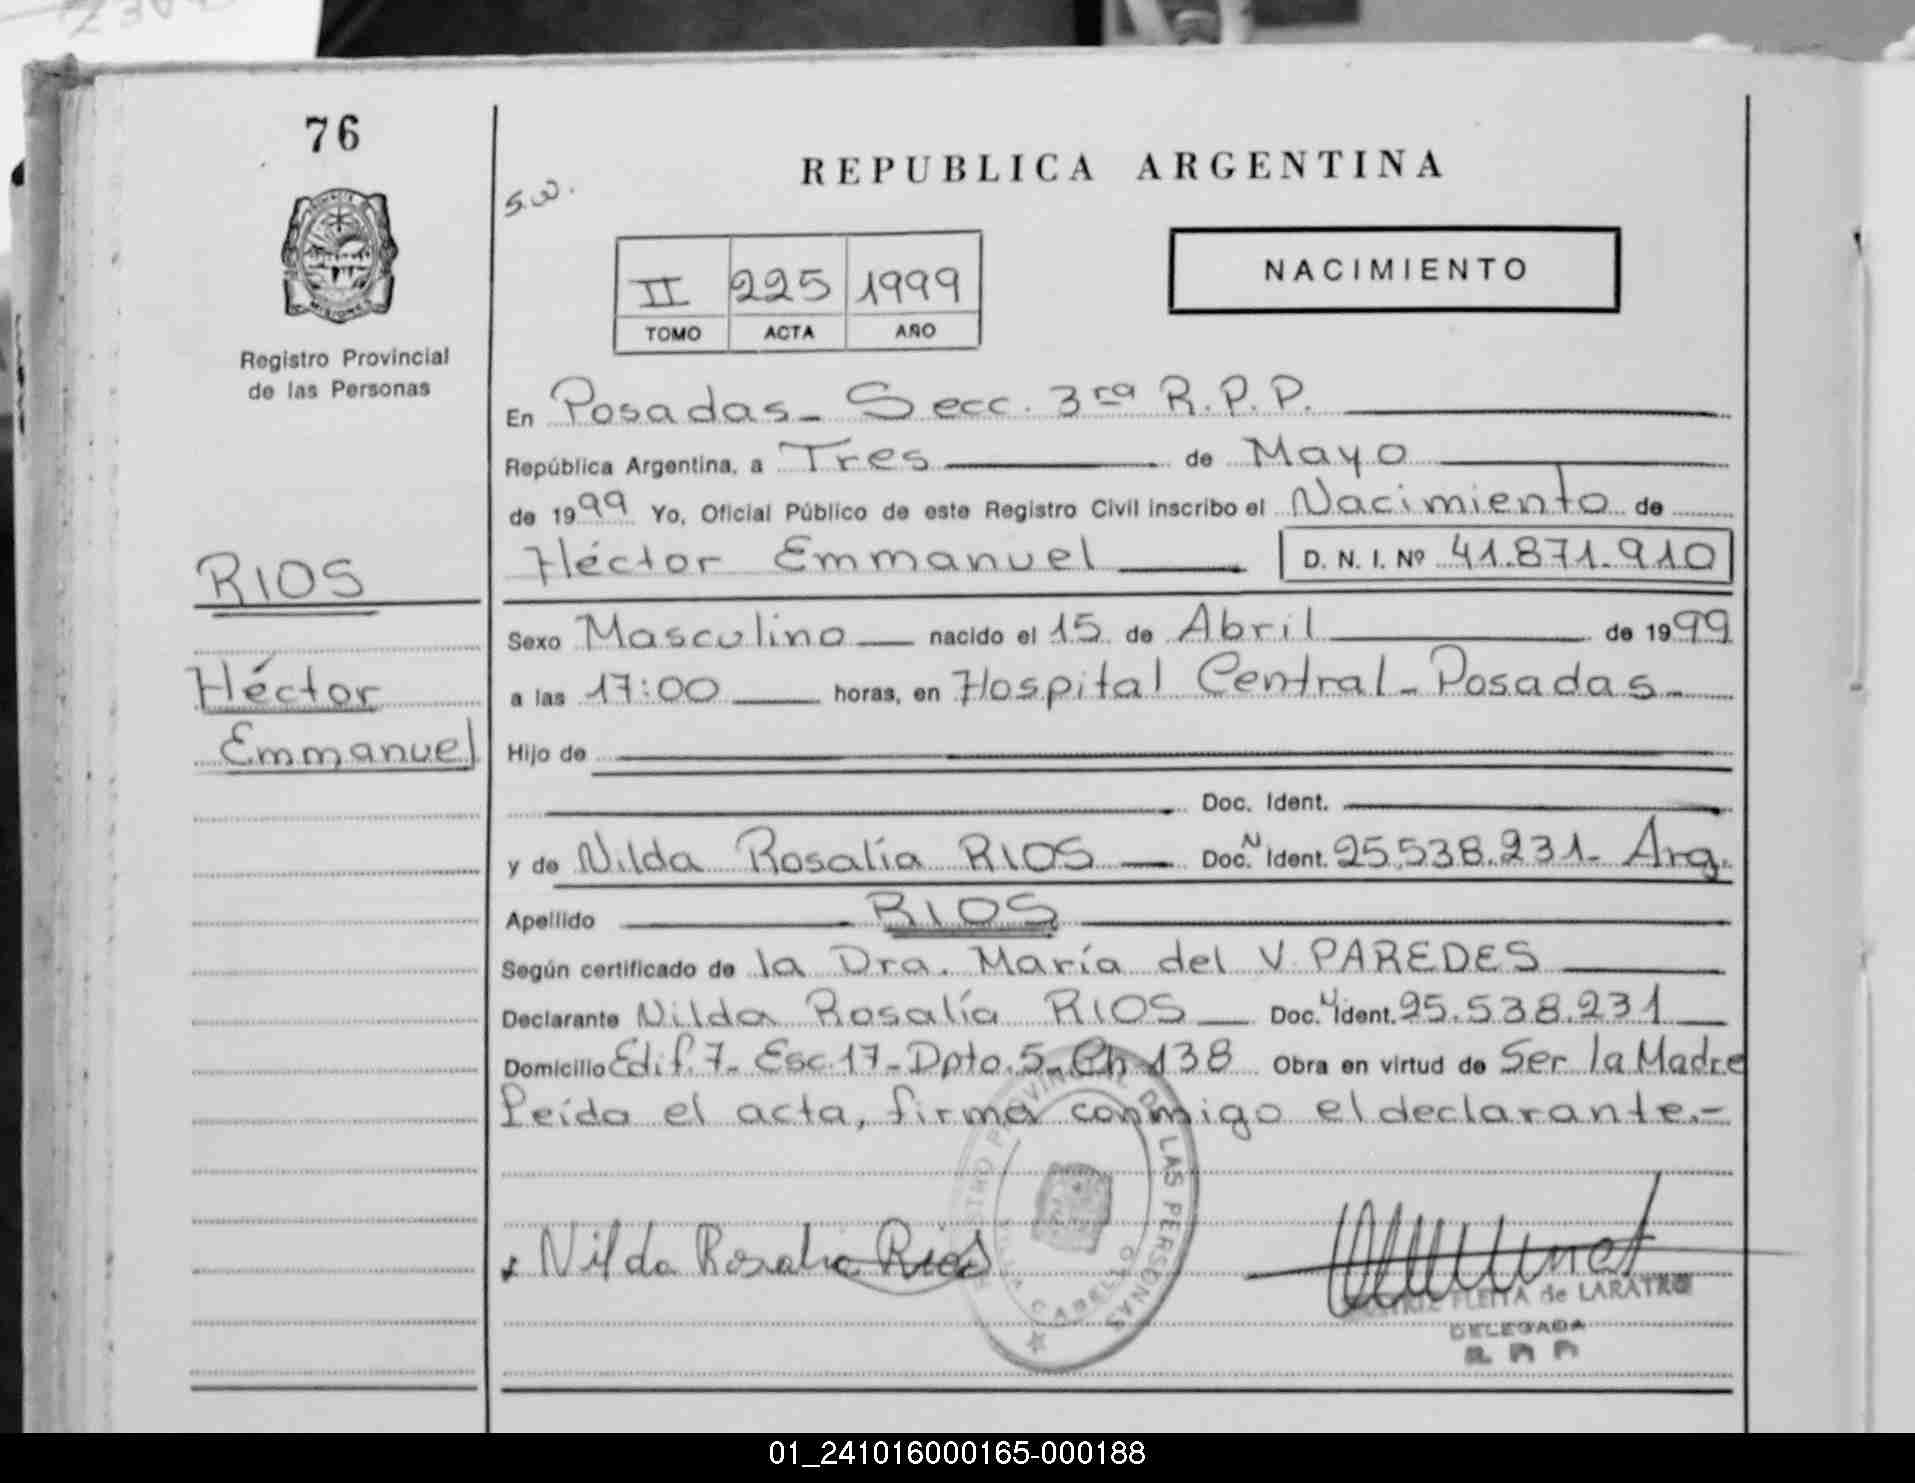 76
REPUBLICA ARGENTINA
s.w.
NACIMIENTO
II 225 1999
TOMO ACTA AÑO
Registro Provincial
de las Personas
En Posadas - Secc. 3ra R.P.P.
República Argentina, a Tres de Mayo
de 1999 Yo, Oficial Público de este Registro Civil inscribo el Nacimiento de
Héctor Emmanuel D. N. I. Nº 41.871.910
RIOS
Héctor
Emmanuel
Sexo Masculino nacido el 15 de Abril de 1999
a las 17:00 horas, en Hospital Central - Posadas -
Hijo de
Doc. Ident.
y de Nilda Rosalía RIOS Doc. N Ident. 25.538.231 - Arg.
Apellido RIOS
Según certificado de la Dra. María del V. PAREDES
Declarante Nilda Rosalía RIOS Doc. N Ident. 25.538.231
Domicilio Edif. 7 - Esc. 17 - Dpto. 5 - Ch. 138 Obra en virtud de Ser la Madre
Leída el acta, firma conmigo el declarante.-
Nilda Rosalia Rios
PROVINCIAL DE LAS PERSONAS
CABELLO
FLEITA de LARATRO
DELEGADA
01_241016000165-000188